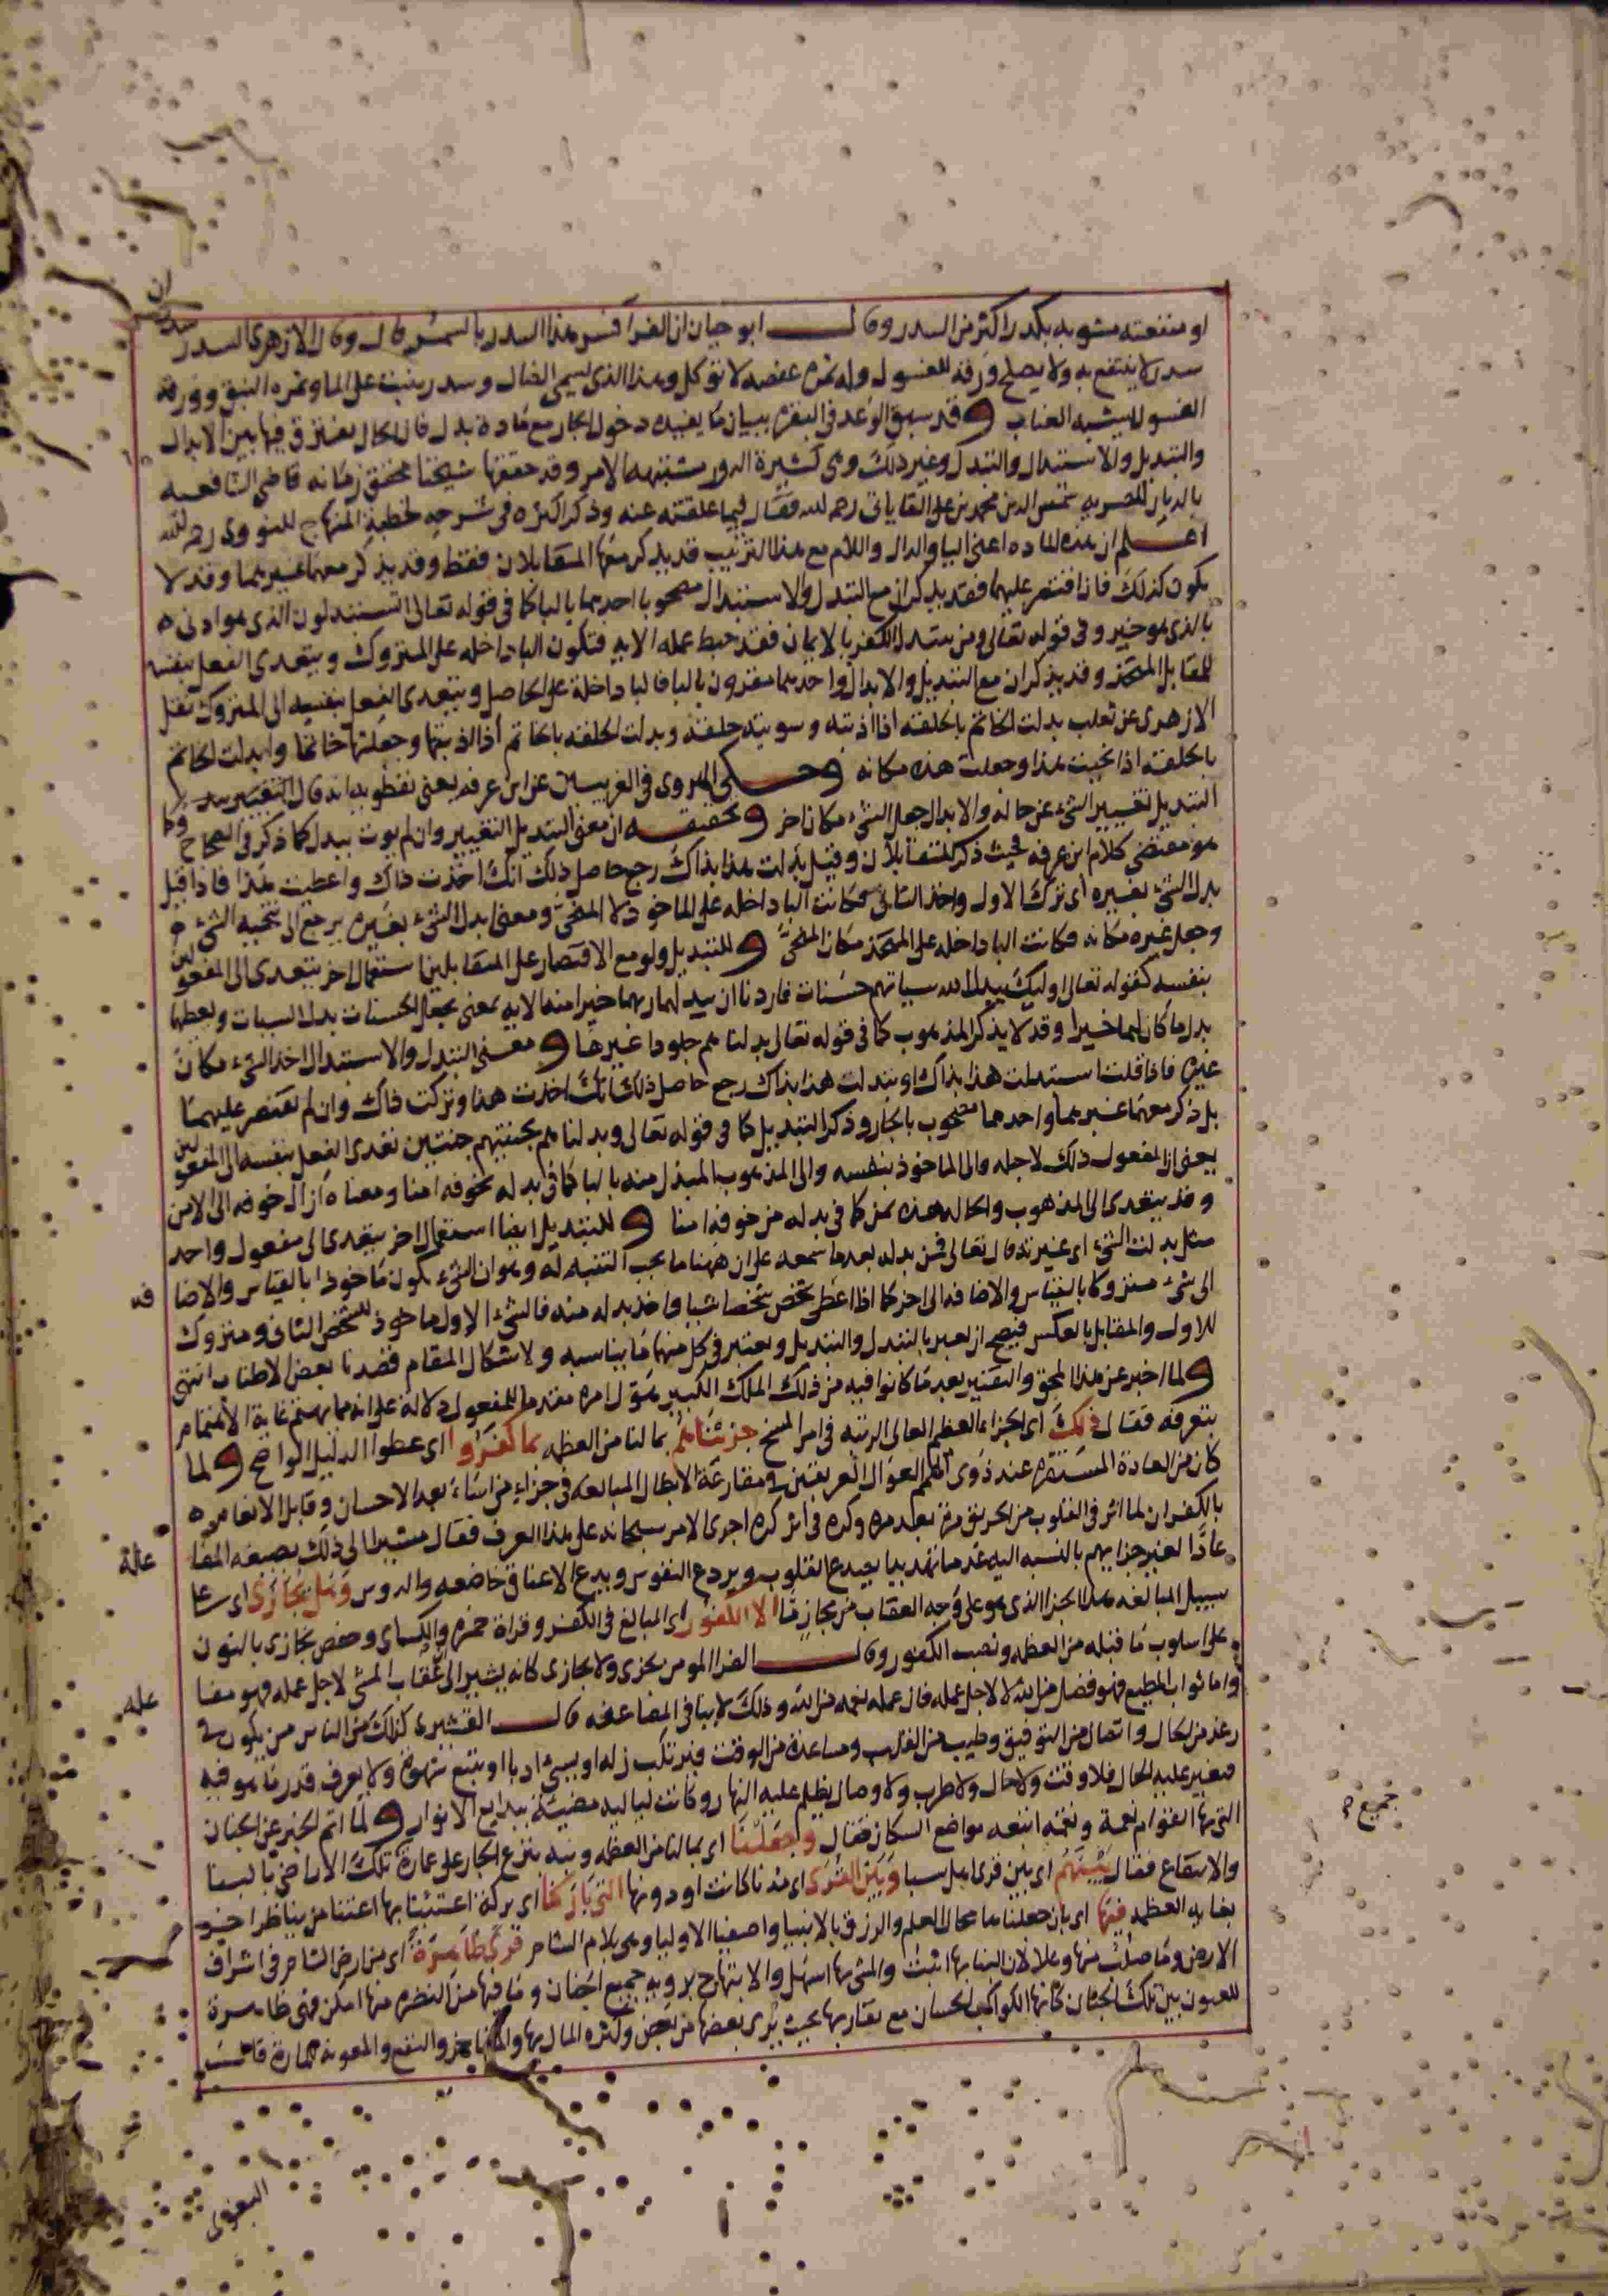 او منفعته مشوبه بكدر اكثر من السدر وقال ابو حيان ان الفرا فسر هذا السدر بالسمر قال وقال الازهرى السدر سدران
سدر لا ينتفع به ولا يصلح ورقه للغسول وله ثمره عفصه لا توكل وهذا الذى يسمى الضال وسدر ينبت على الما وثمره النبق وورقه
الغسول يشبه العناب وقد سبق الوعد فى البقره ببيان ما يفيده دخول الجار مع مادة بدل فان الحال يفترق فيها بين الابدال
والتبديل والاستبدال والتبدل وغير ذلك وهى كثيرة الدور مشتبهه الامر وقد حققها شيخنا محقق زمانه قاضى الشافعيه
بالديار المصريه شمس الدين محمد بن على القاياتى رحمه الله فقال فيما علقته عنه وذكر اكثره فى شرحه لخطبة المنهاج للنووى رحمه الله
اعلم ان هذه الماده اعنى البا والدال واللام مع هذا الترتيب قد يذكر معها المتقابلان فقط وقد يذكر معهما غيرهما وقد لا
يكون كذلك فاذا اقتصر عليهما فقد يذكران مع التبدل والاستبدال مصحوبا احدهما بالبا كما فى قوله تعالى اتستبدلون الذى هو ادنى
بالذى هو خير وفى قوله تعالى ومن يتبدل الكفر بالايمان فقد حبط عمله الايه فتكون البا داخله على المتروك ويتعدى الفعل بنفسه
للمقابل المتخذ وقد يذكران مع التبديل والابدال واحدهما مقرون بالبا فالبا داخلة على الحاصل ويتعدى الفعل بنفسه الى المتروك نقل
الازهرى عن ثعلب بدلت الخاتم بالحلقه اذا اذبته وسويته حلقة وبدلت الحلقه بالخاتم اذا اذبتها وجعلتها خاتما وابدلت الخاتم
بالحلقه اذا نحيت هذا وجعلت هذه مكانه وحكى الهروى فى الغريبين عن ابن عرفه يعنى نفطويه انه قال
التبديل تغيير الشىء عن حاله والابدال جعل الشىء مكان اخر وتحقيقه ان معنى التبديل التغيير وان لم يوت ببدل كما ذكر فى الصحاح وكما
هو مقتضى كلام ابن عرفه فحيث ذكر المتقابلان وقيل بدلت هذا بذاك رجع حاصل ذلك انك اخذت ذاك واعطيت هذا فاذا قيل
بدل الشىء بغيره اى ترك الاول واخذ الثانى فكانت البا داخله على الماخوذ لا المنحى ومعنى ابدل الشىء بغيره يرجع الى تنحية الشىء
وجعل غيره مكانه فكانت البا داخله على المتخذ مكان المنحى وللتبديل ولو مع الاقتصار على المتقابلين استعمال اخر يتعدى الى المفعولين
بنفسه كقوله تعالى اوليك يبدل الله سياتهم حسنات فاردنا ان يبدلهما ربهما خيرا منه الايه بمعنى يجعل الحسنات بدل السيات ويعطيهما
بدل ما كان لهما خيرا وقد لا يذكر المذهوب كما فى قوله تعالى بدلناهم جلودا غيرها ومعنى التبدل والاستبدال اخذ الشىء مكان
غيره فاذا قلت استبدلت هذا بذاك او تبدلت هذا بذاك رجع حاصل ذلك انك اخذت هذا وتركت ذاك وان لم يقتصر عليهما
بل ذكر معهما غيرهما واحدهما مصحوب بالجار وذكر التبديل كما فى قوله تعالى وبدلناهم بجنتيهم جنتين تعدى الفعل بنفسه الى المفعولين
يعنى الى المفعول ذلك لاجله والى الماخوذ بنفسه والى المذهوب المبدل منه بالبا كما فى بدله بخوفه امنا ومعناه ازال خوفه الى الامن
وقد يتعدى الى المذهوب والحاله هذه بمن كما فى بدله من خوفه امنا وللتبديل ايضا استعمال اخر يتعدى الى مفعول واحد
مثل بدلت الشىء اى غيرته قال تعالى فمن بدله بعد ما سمعه على ان ههنا ما يجب التنبه له وهو ان الشىء يكون ماخوذا بالقياس والاضافه
الى شىء متروكا بالقياس والاضافه الى اخر كما اذا اعطى شخص شخصا شيا واخذ بدله منه فالشىء الاول ماخوذ للشخص الثانى ومتروك
للاول والمقابل بالعكس فيصح ان يعبر بالتبدل والتبديل ويعتبر فى كل منهما ما يناسبه ولاشكال المقام قصدنا بعض الاطناب انتهى
ولما اخبر عن هذا المحق والتقتير بعد ما كانوا فيه من ذلك الملك الكبير هول امره مقدما للمفعول دلالة على انه مما يهتم غاية الاهتمام
بتعرفه فقال ذلك اى الجزاء العظيم العالى الرتبه فى امر المسخ جزيناهم بما لنا من العظمه بما كفروا اى غطوا الدليل الواضح ولما
كان من العادة المستقره عند ذوى الهمم العوال العريقين فى مقارعة الابطال المبالغه فى جزاء من اساء بعد الاحسان وقابل الانعام
بالكفران لما اثر فى القلوب من الحريق مرة بعد مره وكره فى اثر كره اجرى الامر سبحانه على هذا العرف فقال مشيرا الى ذلك بصيغه المفاعلة
عادا لغير جزايهم بالنسبه اليه عدما تهديدا يصدع القلوب ويردع النفوس ويدع الاعناق خاضعه والروس وهل نجازى اى على
سبيل المبالغه هذا الجزا الذى هو على وجه العقاب من مجاز ما الا الكفور اى المبالغ فى الكفر وقراة حمزه والكساى وحفص نجازى بالنون
على اسلوب ما قبله من العظمه ونصب الكفور وقال الفرا المومن يجزى ولا يجازى كانه يشير الى ان عقاب المسى لاجل عمله فهو مفاعله
واما ثواب المطيع فهو فضل من الله لا لاجل عمله فان عمله نعمه من الله وذلك لا ينافى المضاعفه قال القشيرى كذلك من الناس من يكون فى
رغد من الحال واتصال من التوفيق وطيب من القلب ومساعدة من الوقت فيرتكب زله او يسىء ادبا او يتبع شهوة ولا يعرف قدر ما هو فيه
فيغير عليه الحال فلا وقت ولا حال ولا طرب ولا وصال يظلم عليه النهار وكانت لياليه مضيئة ببدايع الانوار ولما اتم الخبر عن الجنان
التى بها القوام نعمة ونقمه اتبعه مواضع السكان فقال وجعلنا اى بما لنا من العظمه ونبه بنزع الجار على عمارة تلك الاراضى بالبنا
والانتفاع فقال بينهم اى بين قرى اهل سبا وبين القرى اى مدنا كانت او دونها التى باركنا اى بركة اعتنينا بها اعتنا من يناظر اخر
بغايه العظمه فيها اى بان جعلناها محال العلم والرزق بالانبيا واصفيا الاوليا وهى بلاد الشام قرى ظاهرة اى من ارض الشام فى اشراف
الارض وما صلب منها وعلا لان البنا بها اثبت والمشى بها اسهل والابتهاج برويه جميع الجنان وما فيها من النضره منها امكن فهى ظاهرة
للعيون بين تلك الجنان كانها الكواكب الحسان مع تقاربها بحيث يرى بعضها من بعض وكثره المال بها والمفاخر والنفع والمعونه للمارة قال
جميع
البغوى